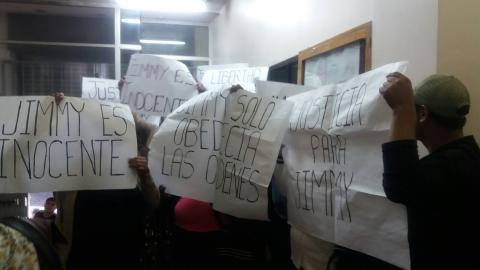 JIMMY ES
INOCENTE
JUS
JIMMY ES
INOCENTE
LIBERTAD
JIMMY SOLO
OBEDECIA
LAS ODENES
JUSTICIA
PARA
JIMMY